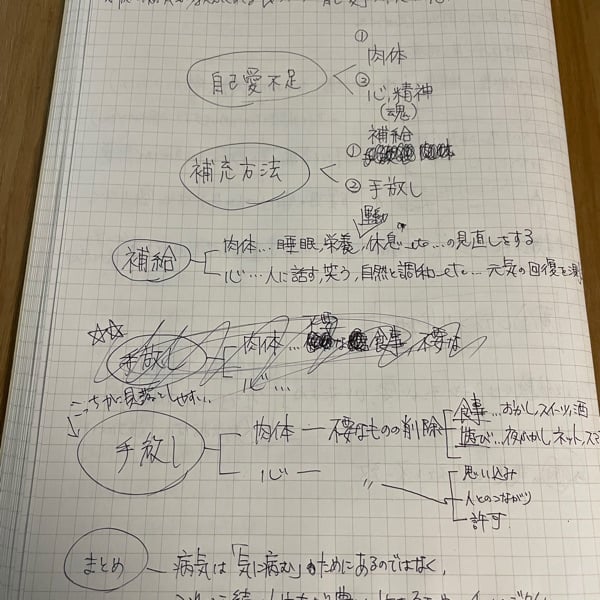 ①
肉体
自己愛不足
②
心,精神
(魂)
補給
①
補充方法
② 手放し
運動
補給
肉体…睡眠,栄養,休息 etc…の見直しをする
心…人に話す,笑う,自然と調和 etc…元気の回復を
☆☆
手放し
肉体… 不要な 食事,不要な
心…
こっちが見落としやすい..
手放し
肉体 ― 不要なものの削除
食事…おかし,スイーツ,酒
遊び…夜ふかし,ネット,ス
心 ― 〃
思い込み
人とのつながり
許可
まとめ
病気は「気に病む」ためにあるのではなく,